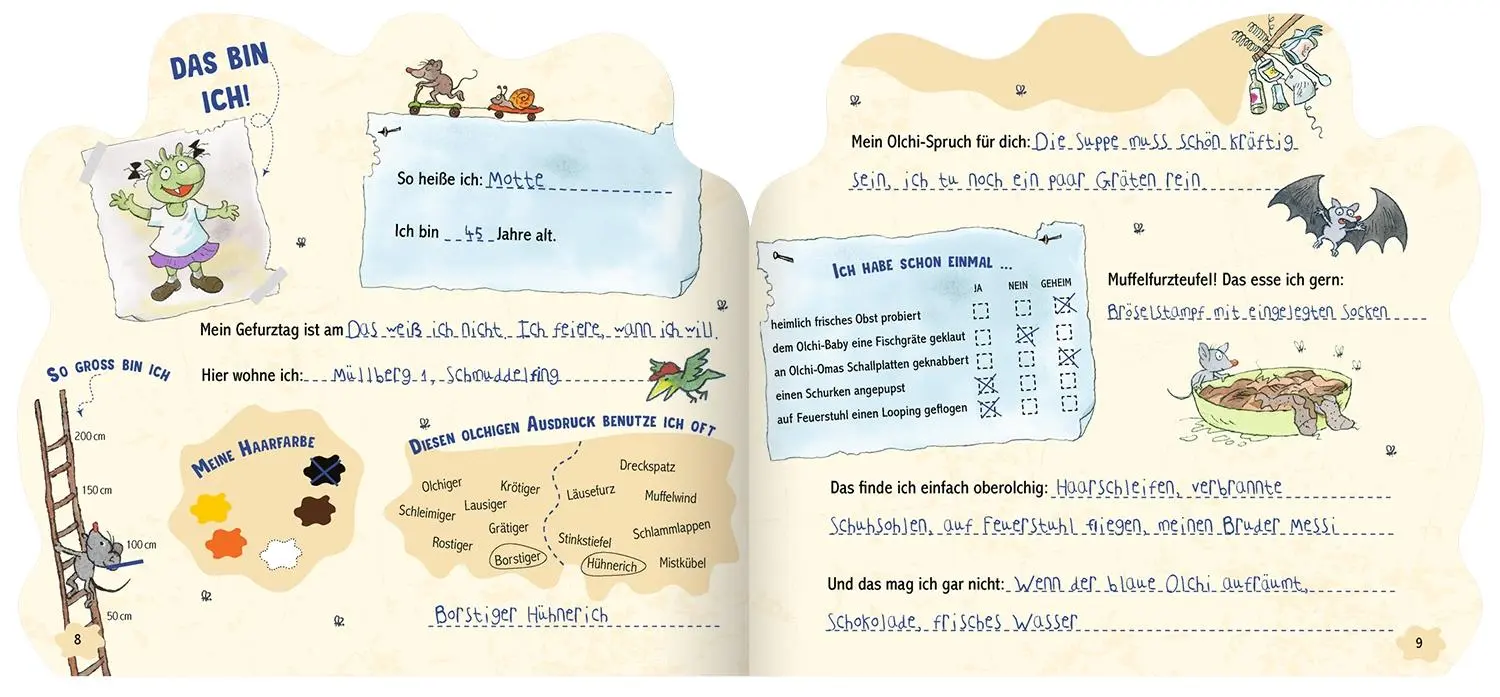 DAS BIN
ICH!
So heiße ich: Motte
Ich bin 45 Jahre alt.
Mein Gefurztag ist am Das weiß ich nicht. Ich feiere, wann ich will.
Hier wohne ich: Müllberg 1, Schmuddelfing
SO GROSS BIN ICH
200 cm
150 cm
100 cm
50 cm
MEINE HAARFARBE
DIESEN OLCHIGEN AUSDRUCK BENUTZE ICH OFT
Olchiger
Krötiger
Schleimiger
Lausiger
Grätiger
Rostiger
Borstiger
Dreckspatz
Läusefurz
Muffelwind
Stinkstiefel
Schlammlappen
Hühnerich
Mistkübel
Borstiger Hühnerich
8
Mein Olchi-Spruch für dich: Die Suppe muss schön kräftig
sein, ich tu noch ein paar Gräten rein
ICH HABE SCHON EINMAL ...
JA NEIN GEHEIM
heimlich frisches Obst probiert
dem Olchi-Baby eine Fischgräte geklaut
an Olchi-Omas Schallplatten geknabbert
einen Schurken angepupst
auf Feuerstuhl einen Looping geflogen
Muffelfurzteufel! Das esse ich gern:
Bröselstampf mit eingelegten Socken
Das finde ich einfach oberolchig: Haarschleifen, verbrannte
Schuhsohlen, auf Feuerstuhl fliegen, meinen Bruder Messi
Und das mag ich gar nicht: Wenn der blaue Olchi aufräumt,
Schokolade, frisches Wasser
9